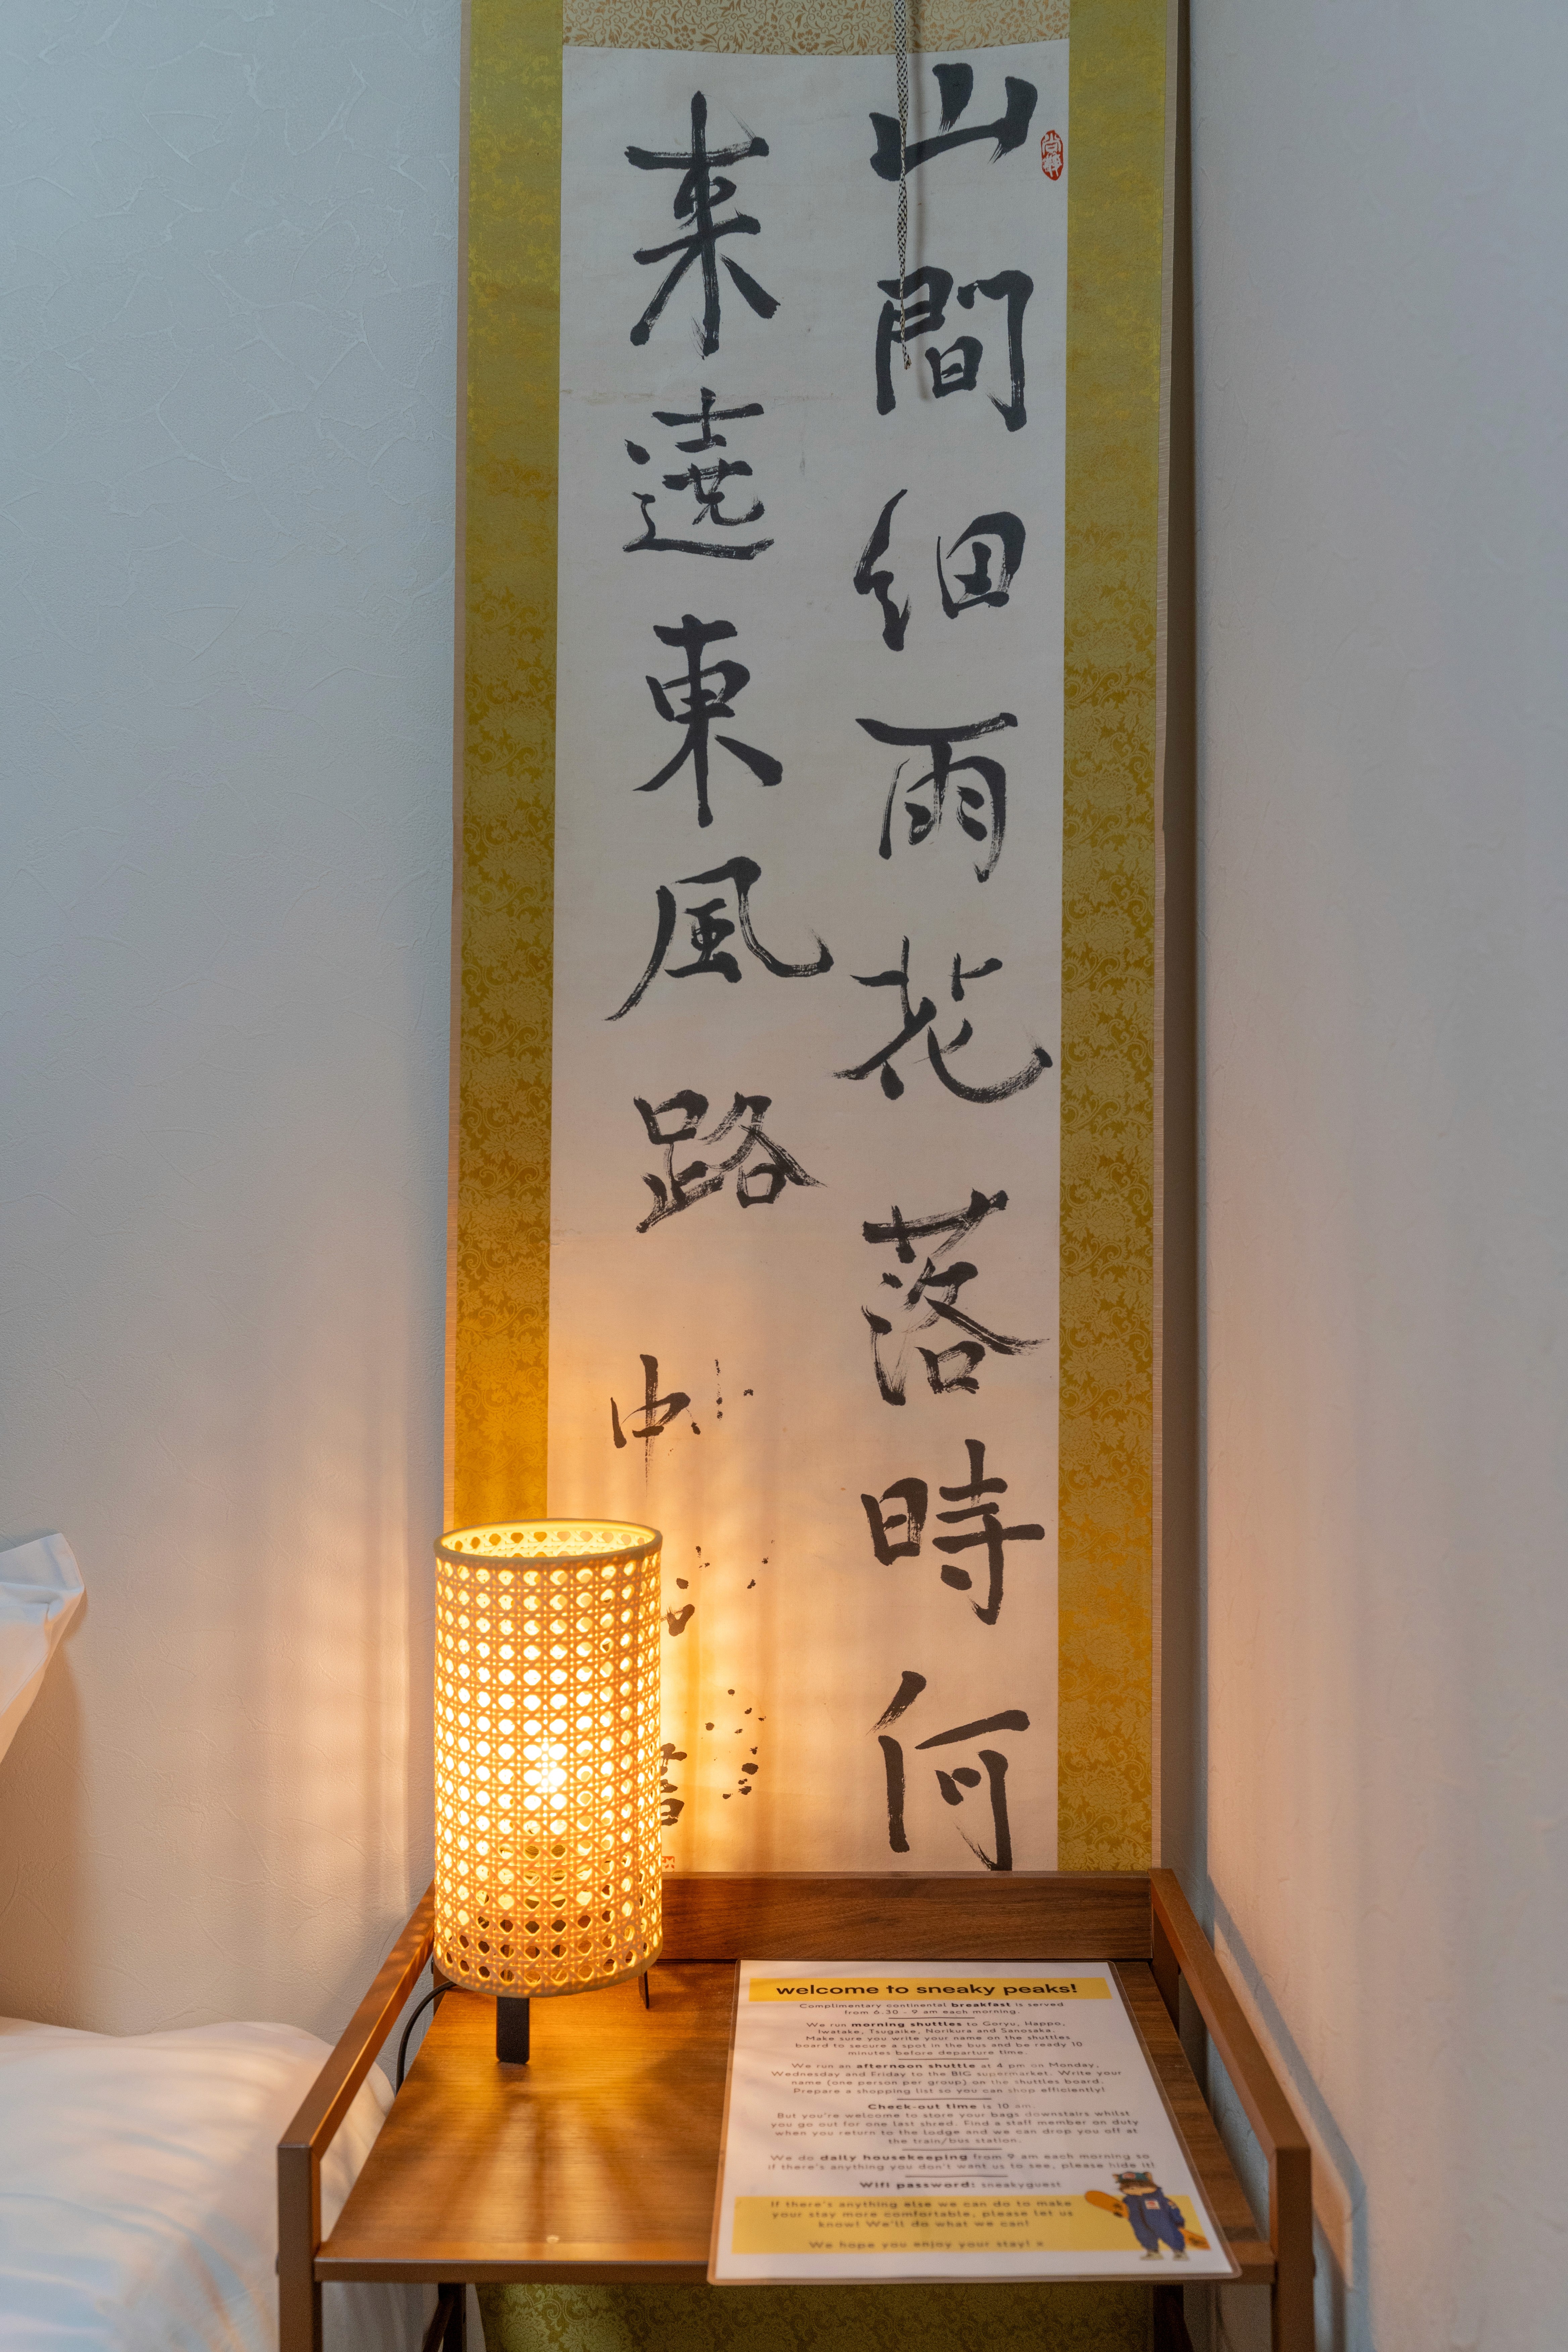 山間細雨花落時何
来遶東風路
welcome to sneaky peaks!
Complimentary continental breakfast is served
from 6.30 - 9 am each morning.
We run morning shuttles to Goryu, Happo,
Iwatake, Tsugaike, Norikura and Sanosaka.
Make sure you write your name on the shuttles
board to secure a spot in the bus and be ready 10
minutes before departure time.
We run an afternoon shuttle at 4 pm on Monday,
Wednesday and Friday to the BIG supermarket. Write your
name (one person per group) on the shuttles board.
Prepare a shopping list so you can shop efficiently!
Check-out time is 10 am.
But you're welcome to store your bags downstairs whilst
you go out for one last shred. Find a staff member on duty
when you return to the lodge and we can drop you off at
the train/bus station.
We do daily housekeeping from 9 am each morning so
if there's anything you don't want us to see, please hide it!
Wifi password: sneakyguest
If there's anything else we can do to make
your stay more comfortable, please let us
know! We'll do what we can!
We hope you enjoy your stay! x